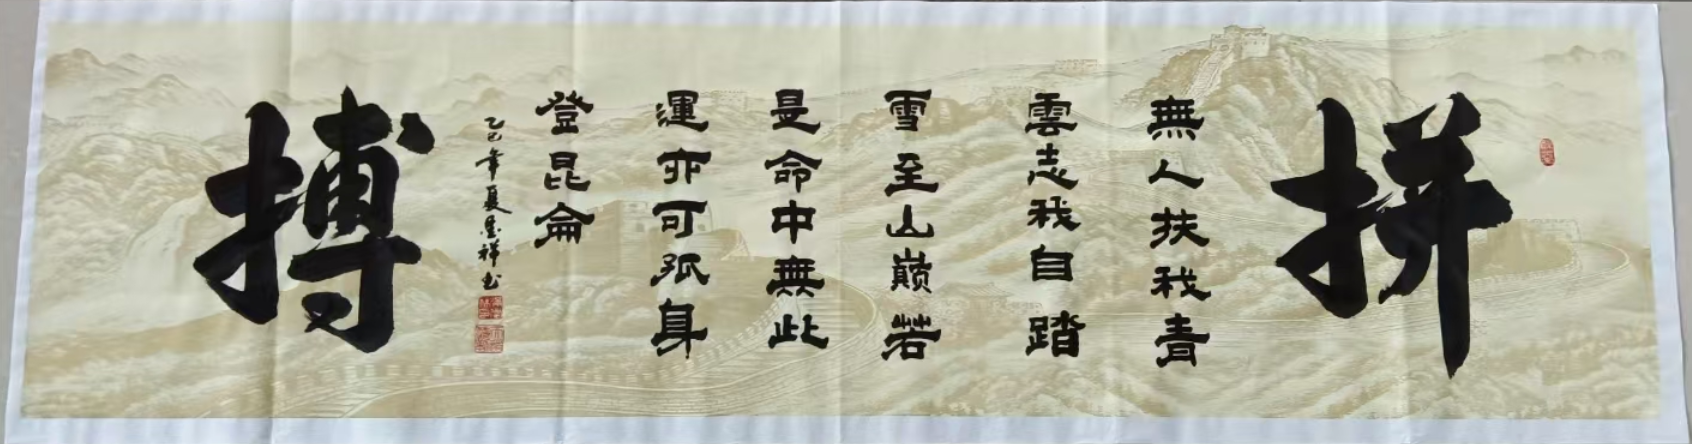 拼
無人扶我青
雲志我自踏
雪至山巔若
是命中無此
運亦可孤身
登昆侖
乙巳年夏墨祥书
搏